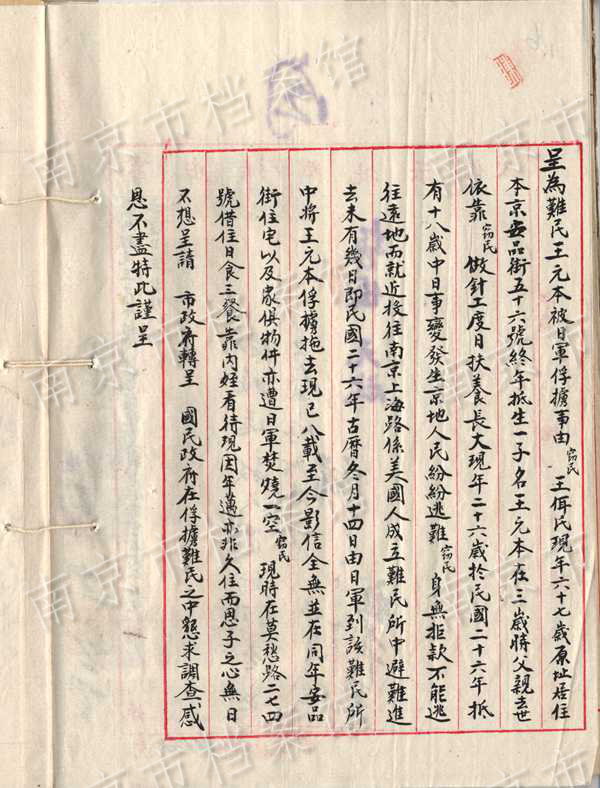 呈為難民王元本被日軍俘擄事由 窃民 王佴氏現年六十七歲原址居住
本京安品街五十六號終年抵生一子名王元本在三歲時父親去世
依靠 窃民 做針工度日扶養長大現年二十六歲於民國二十六年抵
有十八歲中日事變發生京地人民紛紛逃難 窃民 身無拒款不能逃
往遠地而就近投往南京上海路係美國人成立難民所中避難進
去未有幾日即民國二十六年古曆冬月十四日由日軍到該難民所
中將王元本俘擄拖去現已八載至今影信全無並在同年安品
街住宅以及家俱物件亦遭日軍焚燒一空 窃民 現時在莫愁路二七四
號借住日食三餐靠內姪看待現因年邁亦非久住而思子之心無日
不想呈請 市政府轉呈 國民政府在俘擄難民之中懇求調查感
恩不盡特此謹呈
南京市档案馆